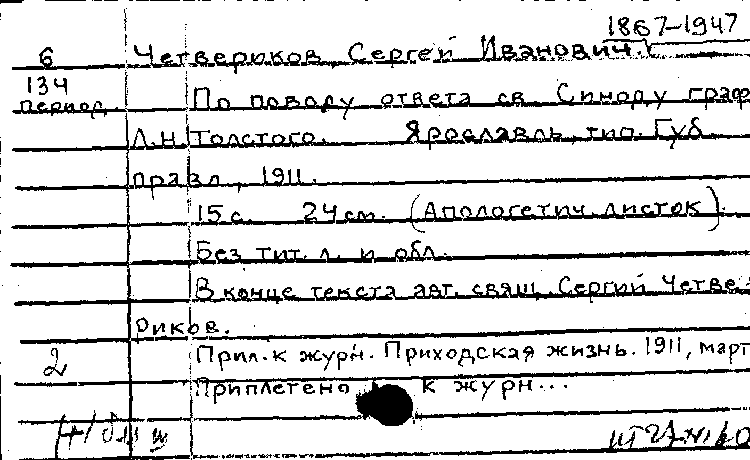 1867-1947
6 Четвериков, Сергей Иванович.
134 период. По поводу ответа св. Синоду граф
Л.Н. Толстого. Ярославль, тип. Губ.
правл., 1911.
15 с. 24 см. (Апологетич. листок).
Без тит. л. и обл.
В конце текста авт. свящ. Сергий Четве-
риков.
2 Прил. к журн. Приходская жизнь. 1911, март
Приплетено к журн...